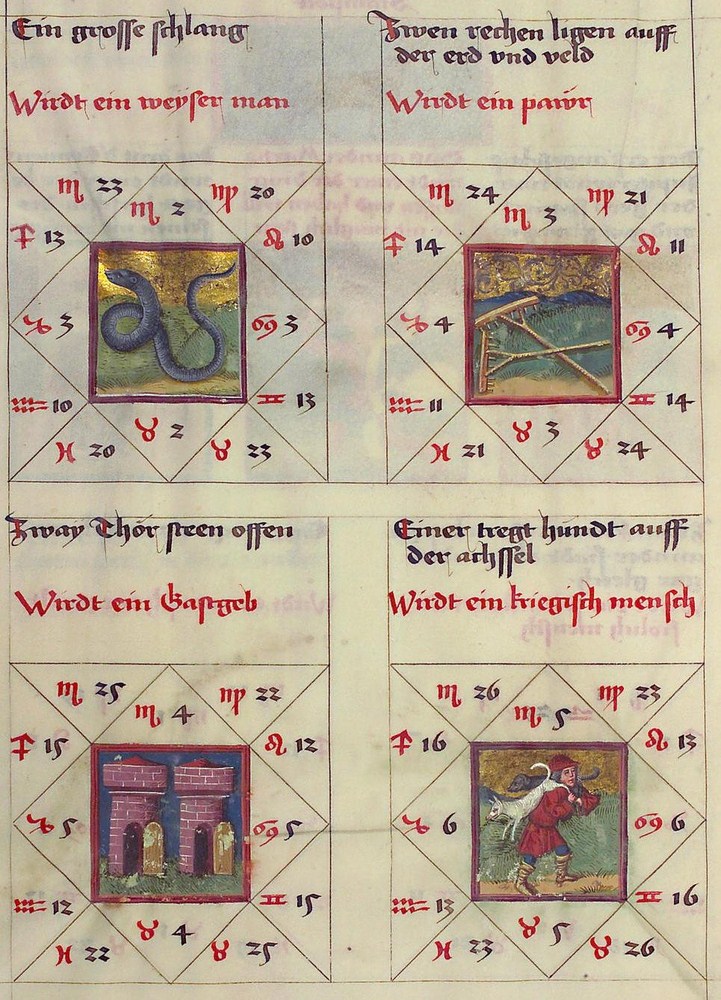 Ein grosse schlang
Wirdt ein weyser man
♏ 23 ♏ 2 ♍ 20
♐ 13 ♌ 10
♑ 3 ♋ 3
♒ 10 ♊ 13
♓ 20 ♉ 2 ♉ 23
Zwen rechen ligen auff
der erd vnd veld
Wirdt ein pawr
♏ 24 ♏ 3 ♍ 21
♐ 14 ♌ 11
♑ 4 ♋ 4
♒ 11 ♊ 14
♓ 21 ♉ 3 ♉ 24
Zway Thör steen offen
Wirdt ein Gastgeb
♏ 25 ♏ 4 ♍ 22
♐ 15 ♌ 12
♑ 5 ♋ 5
♒ 12 ♊ 15
♓ 22 ♉ 4 ♉ 25
Einer tregt hündt auff
der achssel
Wirdt ein kriegisch mensch
♏ 26 ♏ 5 ♍ 23
♐ 16 ♌ 13
♑ 6 ♋ 6
♒ 13 ♊ 16
♓ 23 ♉ 5 ♉ 26